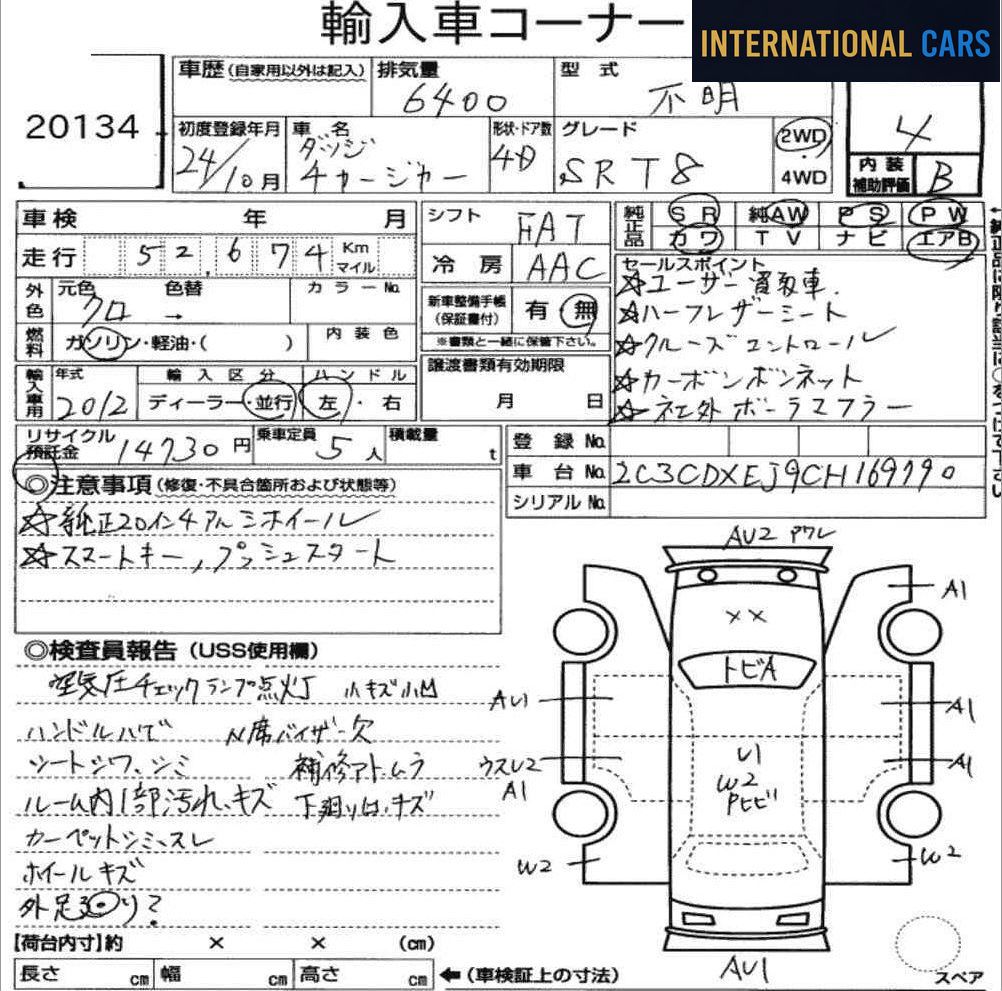 輸入車コーナー
INTERNATIONAL CARS
20134
車歴(自家用以外は記入) 排気量 6400 型式 不明
初度登録年月 24/10月 車名 ダッジ チャージャー 形状・ドア数 4D グレード SRT8 2WD 4WD
4
内装補助評価 B
車検 年 月
走行 52,674 Km マイル
外色 元色 クロ → 色替 カラーNo.
燃料 ガソリン・軽油・( ) 内装色
輸入車用 年式 2012 輸入区分 ディーラー・並行 ハンドル 左・右
シフト FAT
冷房 AAC
新車整備手帳(保証書付) 有 無
※書類と一緒に保管下さい。
譲渡書類有効期限
月 日
純正品 SR 純AW PS PW
カワ TV ナビ エアB
セールスポイント
☆ユーザー買取車.
☆ハーフレザーシート
☆クルーズコントロール
☆カーボンボンネット
☆社外ボーラマフラー
リサイクル預託金 14730円 乗車定員 5人 積載量 t
登録No.
車台No. 2C3CDXEJ9CH169790
シリアルNo.
◎注意事項(修復・不具合箇所および状態等)
☆純正20インチアルミホイール
☆スマートキー,プッシュスタート
◎検査員報告(USS使用欄)
空気圧チェックランプ点灯 小キズ小凹
ハンドルハゲ N席バイザー欠
シートシワ、シミ 補修アト、ムラ
ルーム内1部汚れ、キズ 下廻りサビ、キズ
カーペットシミ、スレ
ホイールキズ
外足廻り?
【荷台内寸】約 × × (cm)
長さ cm 幅 cm 高さ cm ←(車検証上の寸法)
AU2 ワレ
A1
××
トビA
AU1
A1
ウスU2
A1
A1
U1
W2
Pヒビ
W2
W2
AU1
スペア